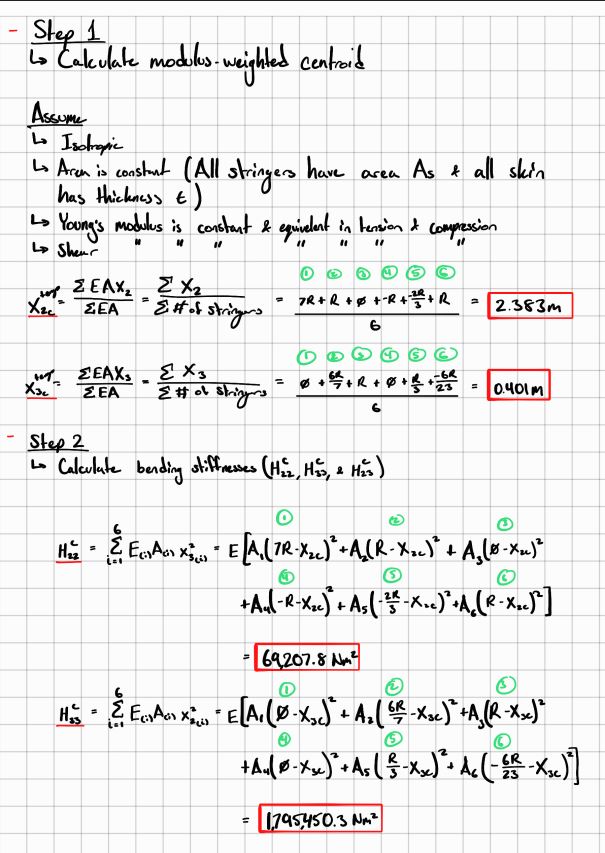 - Step 1
↳ Calculate modulus-weighted centroid
Assume
↳ Isotropic
↳ Area is constant (All stringers have area As & all skin
has thickness t)
↳ Young's modulus is constant & equivalent in tension & compression
↳ Shear " " " " " " "
① ② ③ ④ ⑤ ⑥
X₂c = ΣEAX₂/ΣEA = ΣX₂/Σ# of stringers = (7R + R + ∅ + -R + -2R/3 + R)/6 = 2.383m
① ② ③ ④ ⑤ ⑥
X₃c = ΣEAX₃/ΣEA = ΣX₃/Σ# of stringers = (∅ + 6R/7 + R + ∅ + R/3 + -6R/23)/6 = 0.401m
- Step 2
↳ Calculate bending stiffnesses (H₂₂ᶜ, H₃₃ᶜ, & H₂₃ᶜ)
① ② ③
H₂₂ᶜ = Σ⁶ᵢ₌₁ E₍ᵢ₎A₍ᵢ₎ x₃₍ᵢ₎² = E[A₁(7R-X₂c)² + A₂(R-X₂c)² + A₃(∅-X₂c)²
④ ⑤ ⑥
+A₄(-R-X₂c)² + A₅(-2R/3-X₂c)² + A₆(R-X₂c)²]
= 69,207.8 Nm²
① ② ③
H₃₃ᶜ = Σ⁶ᵢ₌₁ E₍ᵢ₎A₍ᵢ₎ x₂₍ᵢ₎² = E[A₁(∅-X₃c)² + A₂(6R/7-X₃c)² + A₃(R-X₃c)²
④ ⑤ ⑥
+A₄(∅-X₃c)² + A₅(R/3-X₃c)² + A₆(-6R/23-X₃c)²]
= 1,795,450.3 Nm²